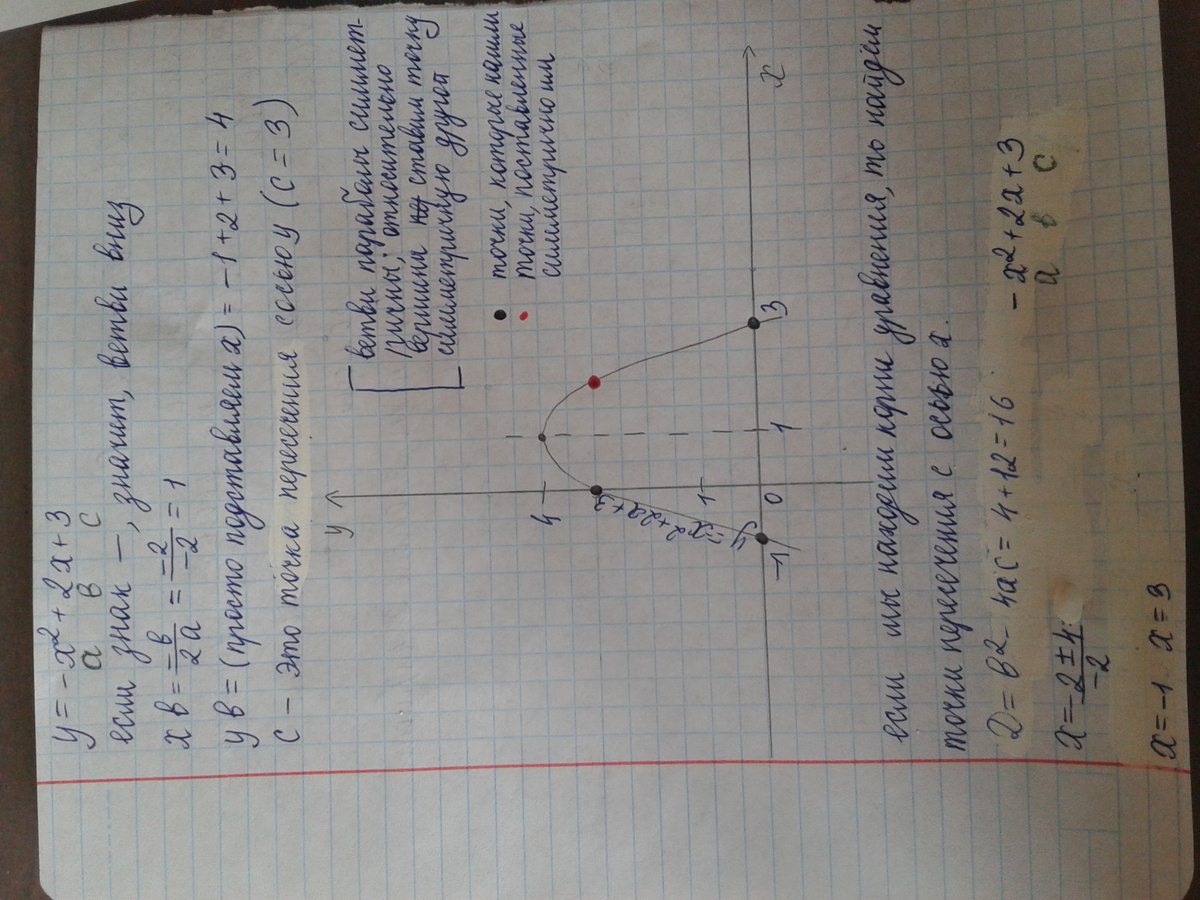 y = -x² + 2x + 3
а в с
если знак —, значит, ветви вниз
x в = -в/2а = -2/-2 = 1
y в = (просто подставляем х) = -1 + 2 + 3 = 4
с — это точка пересечения с осью y (с = 3)
ветви параболы симмет-
ричны, относительно
вершина ставим точку
симметричную другой
точки, которые нашли
точки, поставленные
симметрично им
y
4
3
1
y=-x²+2x+3
-1
0
1
3
x
если мы находим корни уравнения, то найдём
точки пересечения с осью х.
D = в² - 4ас = 4 + 12 = 16
-x² + 2x + 3
а в с
x = -2 ± 4/-2
x = -1 x = 3